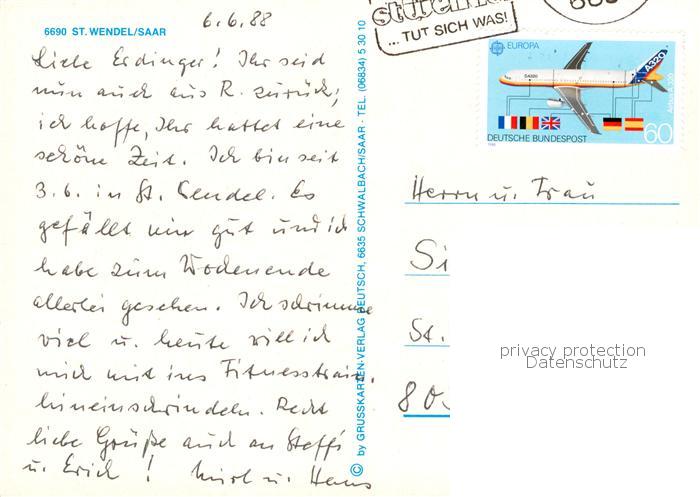 6690 ST. WENDEL/SAAR
6.6.88
Liebe Erdinger! Ihr seid
nun auch aus R. zurück,
ich hoffe, Ihr hattet eine
schöne Zeit. Ich bin seit
3.6. in St. Wendel. Es
gefällt mir gut und ich
habe zum Wochenende
allerlei gesehen. Ich schwimme
viel u. heute will ich
mich mit ins Fitnesstrain.
hineinschwindeln. Recht
liebe Grüße auch an Steffi
u. Erich! u. Hans
© by GRUSSKARTEN-VERLAG DEUTSCH, 6635 SCHWALBACH/SAAR · TEL. (06834) 5 30 10
... TUT SICH WAS!
EUROPA
A320
Airbus A320
DEUTSCHE BUNDESPOST
60
1988
Herrn u. Frau
Si
St.
80
privacy protection
Datenschutz